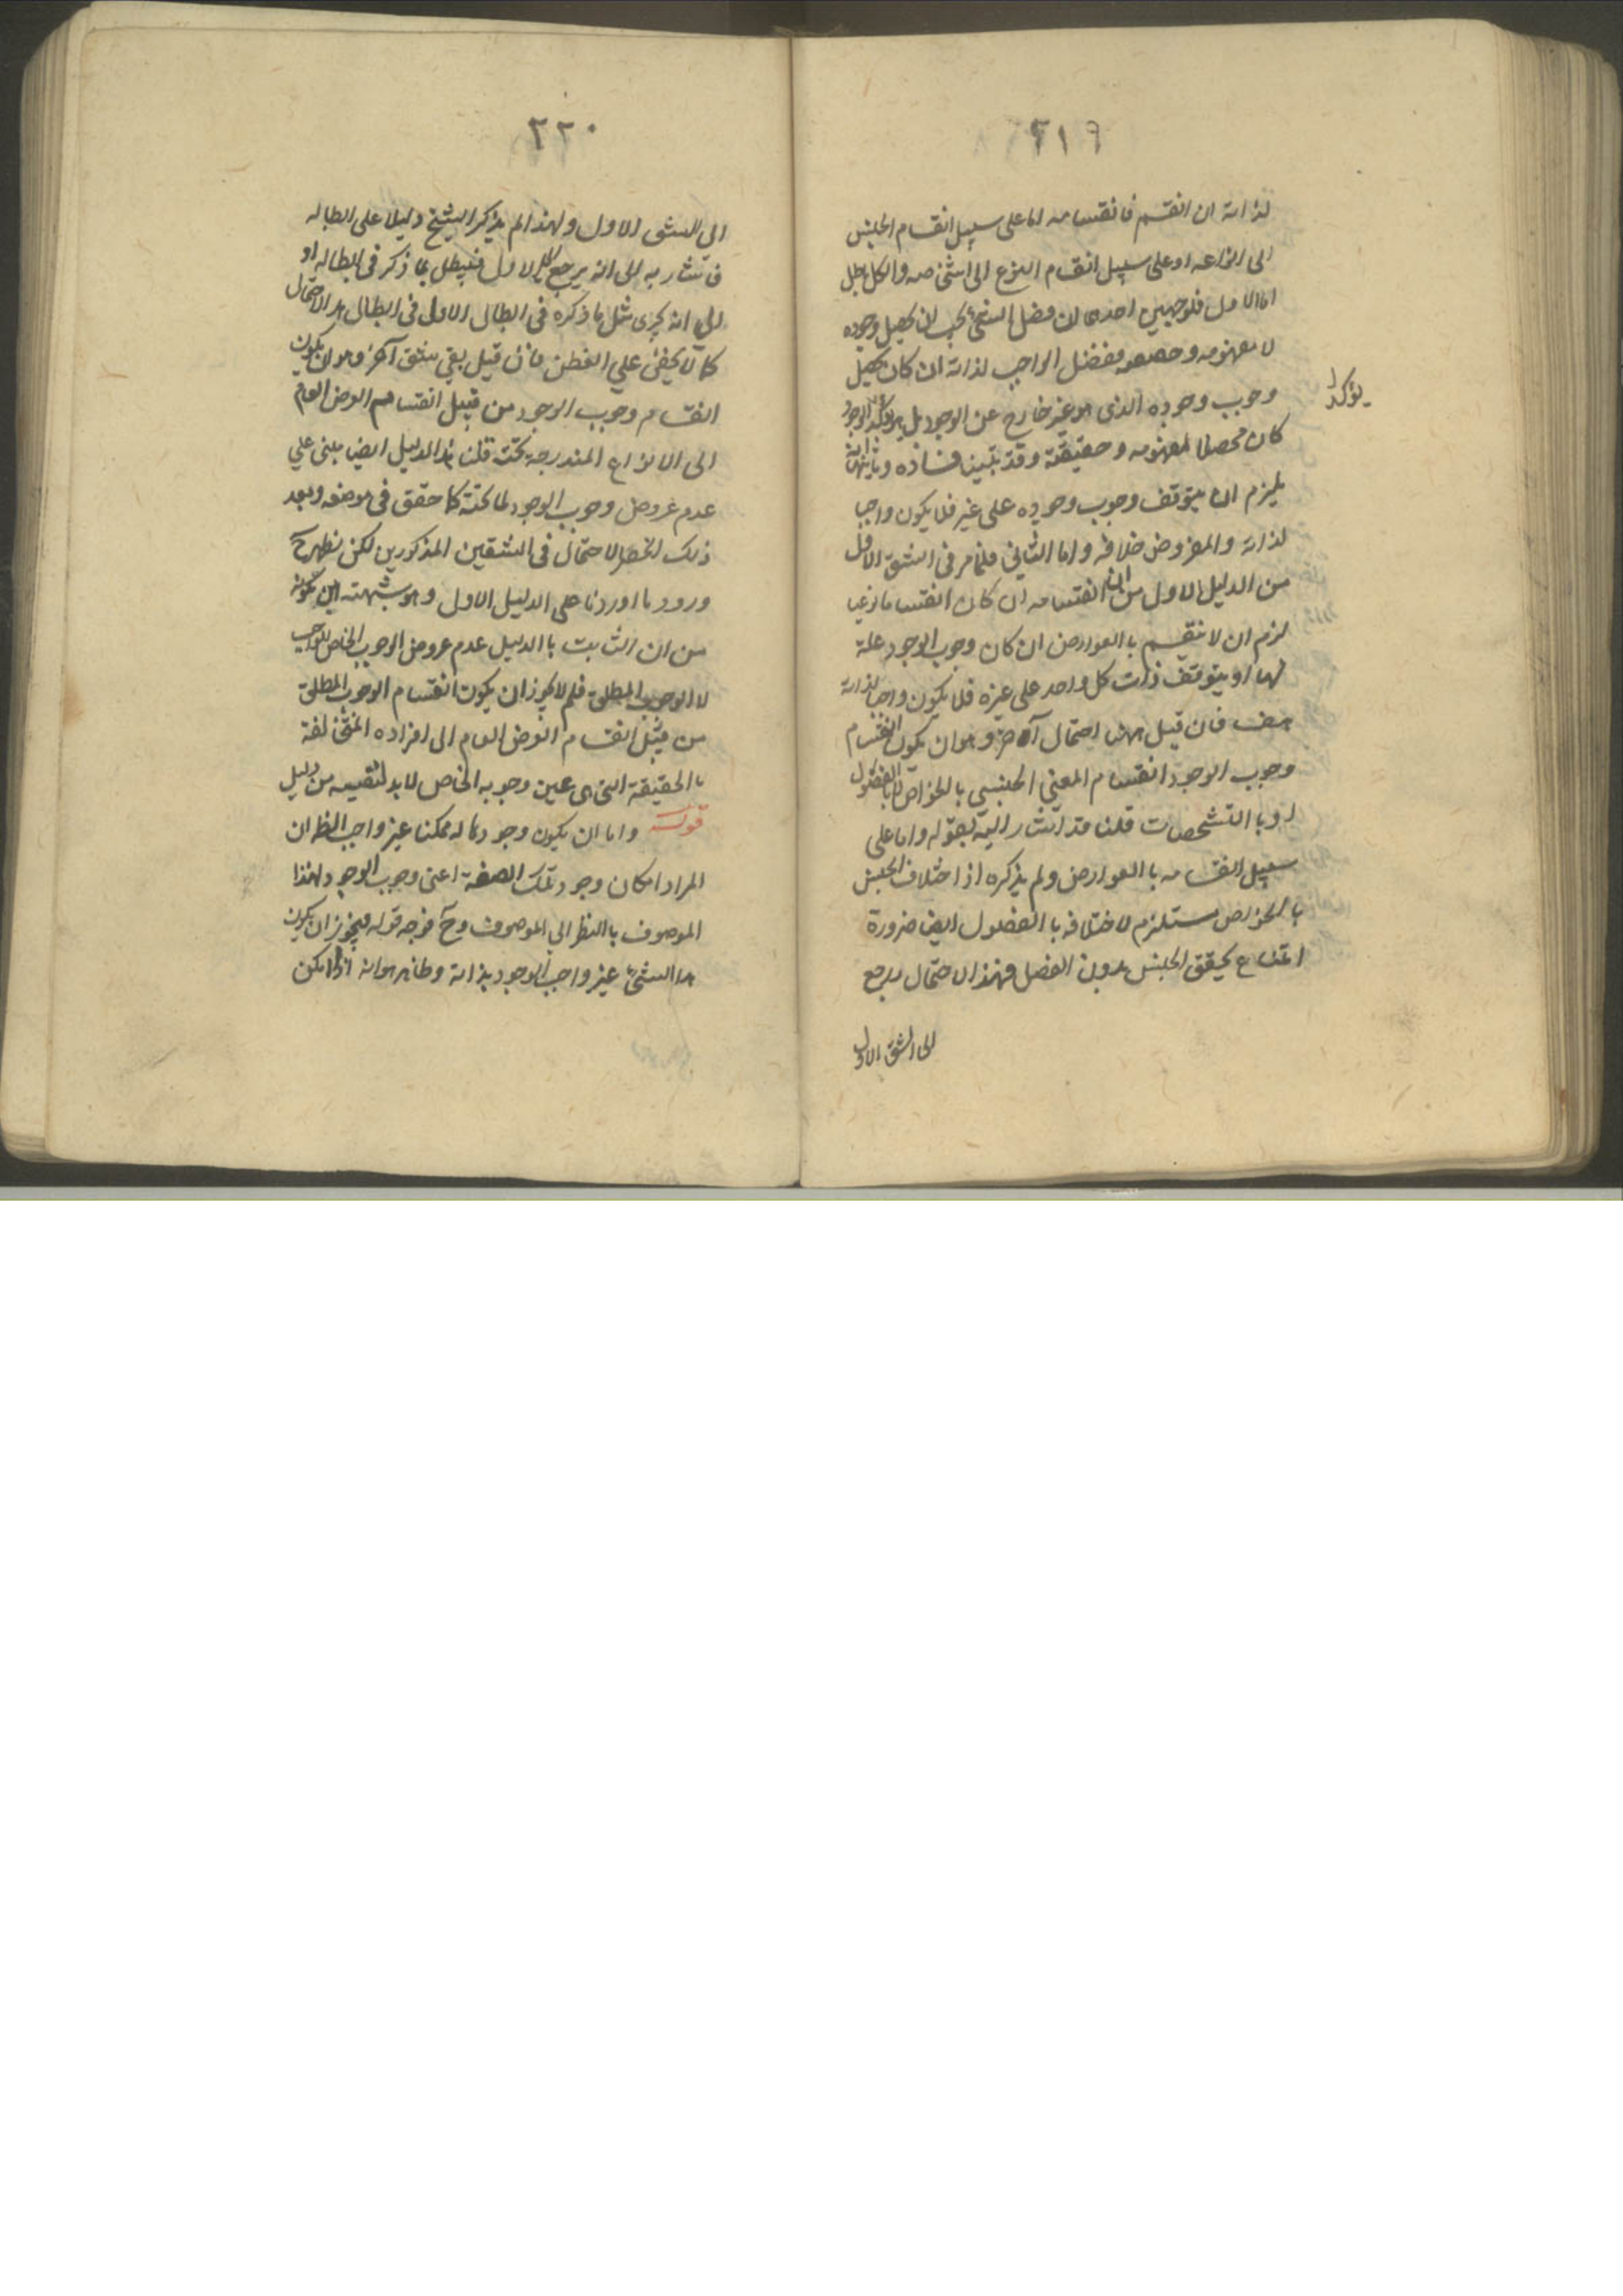 ٢١٩
لذاته ان انقسم فانقسامه اما على سبيل انقسام الجنس
الى انواعه او على سبيل انقسام النوع الى اشخاصه والكل باطل
اما الاول فلوجهين احدهما ان فصل الشئ يجب ان يحصل وجوده
لا مفهومه وحقيقته ففصل الواجب لذاته ان كان يحصل
وجوب وجوده الذى هو غير خارج عن الوجود بل هو تأكد الوجود
يؤكد
كان محصلا لمفهومه وحقيقته وقد تبين فساده وثانيهما انه
يلزم ان يتوقف وجوب وجوده على غير فلا يكون واجبا
لذاته والمفروض خلافه واما الثانى فلما مر فى الشق الاول
من الدليل الاول من ان انقسامه ان كان انقساما نوعيا
لزم ان لا ينقسم باالعوارض ان كان وجوب الوجود علة
لها او يتوقف ذات كل واحد على غيره فلا يكون واجبا لذاته
هف فان قيل ههنا احتمال آخر وهو ان يكون انقسام
وجوب الوجود انقسام المعنى الجنسى باالخواص لا باالفصول
او باالتشخصات قلنا قد اشار اليه بقوله واما على
سبيل انقسامه باالعوارض ولم يذكره اذ اختلاف الجنس
باالخواص مستلزم لاختلافه باالفصول ايضا ضرورة
امتناع تحقق الجنس بدون الفصل فهذا الاحتمال يرجع
الى الشق الاول
٢٢٠
الى الشق الاول ولهذا لم يذكر الشيخ دليلا على ابطاله
فاشار به الى انه يرجع الى الاول فيبطل بما ذكر فى ابطاله او
الى انه يجرى مثل ما ذكره فى ابطال الاول فى ابطال هذا الاحتمال
كما لا يخفى على الفطن فان قيل بقى شق آخر وهو ان يكون
انقسام وجوب الوجود من قبيل انقسام العرض العام
الى الانواع المندرجة تحته قلنا هذا الدليل ايضا مبنى على
عدم عروض وجوب الوجود لما تحته كما حقق فى موضعه وبعد
ذلك انحصر الاحتمال فى الشقين المذكورين لكن يظهر ح
ورود ما اوردنا على الدليل الاول وهو شبهة ابن كمونه
من ان الثابت باالدليل عدم عروض الوجوب الخاص للواجب
لا الوجوب المطلق فلم لا يجوز ان يكون انقسام الوجوب المطلق
من قبيل انقسام العرض العام الى افراده المتخالفة
باالحقيقة التى هى عين وجوبه الخاص لا بد لنفيه من دليل
قوله واما ان يكون وجود ما له ممكنا غير واجب الظ ان
المراد امكان وجود تلك الصفة اعنى وجوب الوجود لهذا
الموصوف باالنظر الى الموصوف وح فوجه قوله فيجوز ان يكون
هذا الشئ غير واجب الوجود بذاته وظاهر هو انه اذا امكن